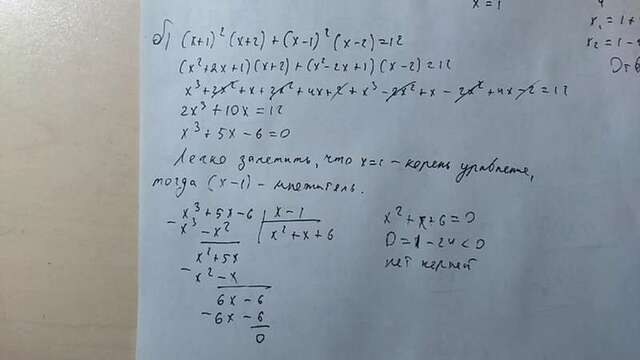 x = 1
x₁ = 1 +
x₂ = 1 -
Отв
б) (x+1)² (x+2) + (x-1)² (x-2) = 12
(x²+2x+1)(x+2) + (x²-2x+1)(x-2) = 12
x³ + 2x² + x + 2x² + 4x + 2 + x³ - 2x² + x - 2x² + 4x - 2 = 12
2x³ + 10x = 12
x³ + 5x - 6 = 0
Легко заметить, что x=1 - корень уравнение,
тогда (x-1) - множитель.
- x³ + 5x - 6 | x - 1
x³ - x² | x² + x + 6
x² + 5x
- x² - x
6x - 6
- 6x - 6
0
x² + x + 6 = 0
D = 1 - 24 < 0
нет корней